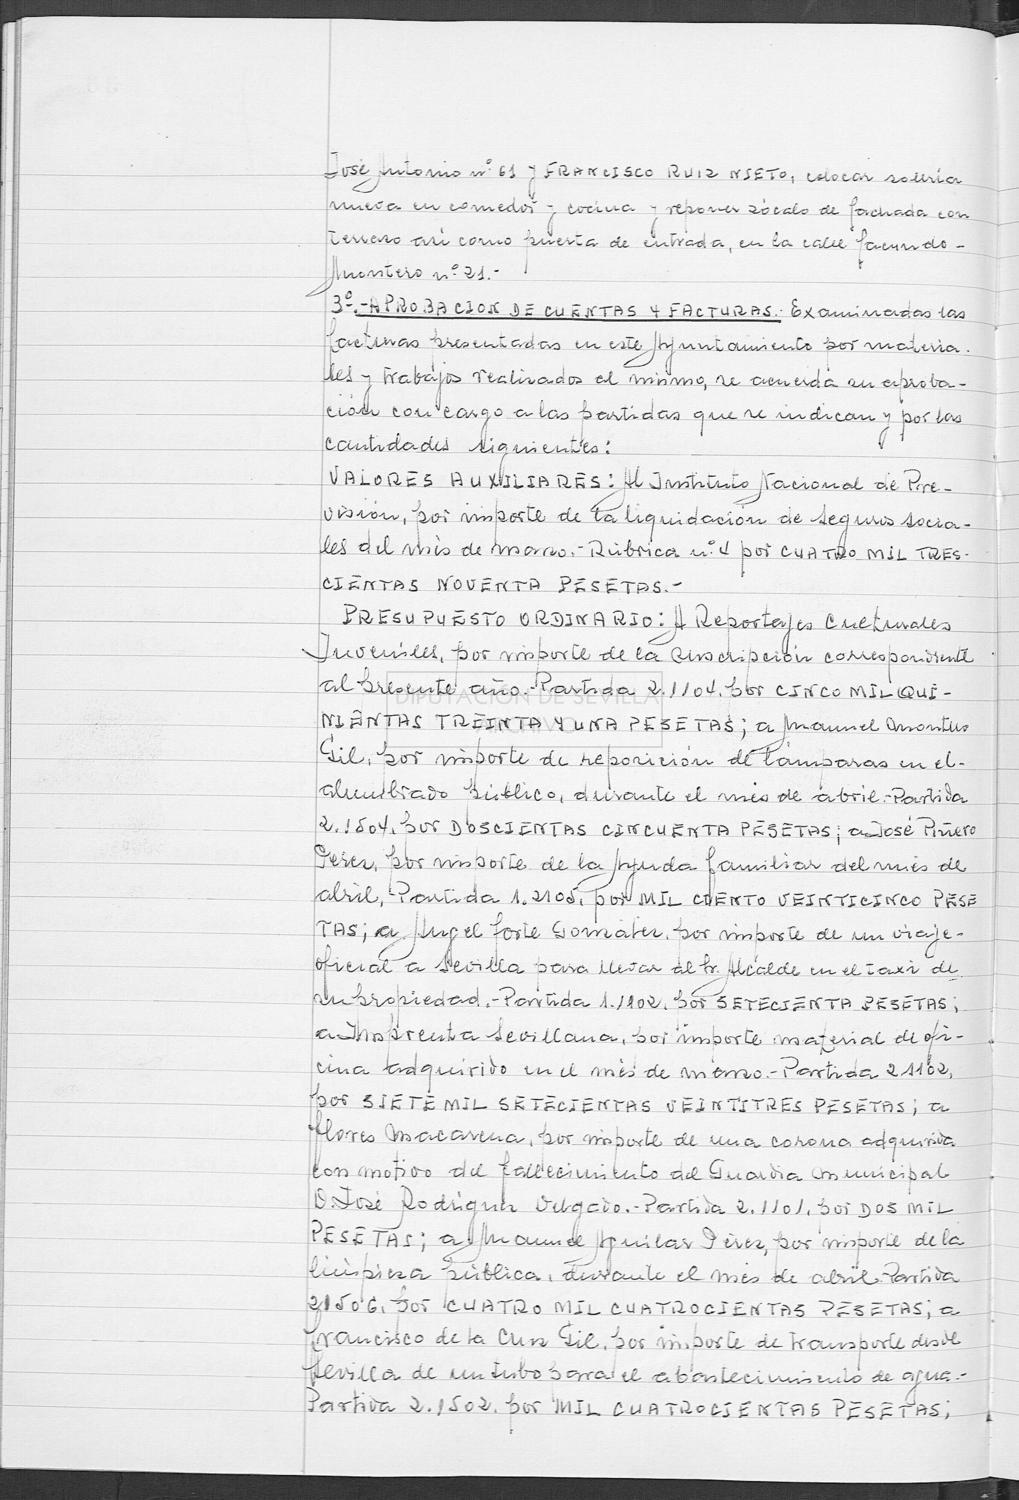 José Antonio nº 61 y FRANCISCO RUIZ NIETO, colocar solería
nueva en comedor y cocina y reponer zócalo de fachada con
terrazo así como puerta de entrada, en la calle Facundo-
Montero nº 21.-
3º.-APROBACION DE CUENTAS Y FACTURAS.- Examinadas las
facturas presentadas en este Ayuntamiento por materia-
les y trabajos realizados al mismo, se acuerda su aproba-
ción con cargo a las partidas que se indican y por las
cantidades siguientes:
VALORES AUXILIARES: Al Instituto Nacional de Pre-
visión, por importe de la liquidación de seguros socia-
les del mes de marzo.- Rúbrica nº 4 por CUATRO MIL TRES-
CIENTAS NOVENTA PESETAS.-
PRESUPUESTO ORDINARIO: A Reportajes Culturales
Juveniles, por importe de la suscripción correspondiente
al presente año.- Partida 2.1104, por CINCO MIL QUI-
NIENTAS TREINTA Y UNA PESETAS; a Manuel Montes
Gil, por importe de reposición de lámparas en el-
alumbrado público, durante el mes de abril.-Partida
2.1504, por DOSCIENTAS CINCUENTA PESETAS; a José Piñero
Pérez, por importe de la Ayuda familiar del mes de
abril,-Partida 1.2105, por MIL CIENTO VEINTICINCO PESE
TAS; a Angel Forte González, por importe de un viaje-
oficial a Sevilla para llevar al Sr. Alcalde en el taxi de
su propiedad.-Partida 1.1102, por SETECIENTA PESETAS;
a Imprenta Sevillana, por importe material de ofi-
cina adquirido en el mes de marzo.-Partida 2 1102,
por SIETE MIL SETECIENTAS VEINTITRES PESETAS; a
Flores Macarena, por importe de una corona adquirida
con motivo del fallecimiento del Guardia Municipal
D. José Rodríguez Delgado.-Partida 2.1101, por DOS MIL
PESETAS; a Manuel Aguilar Pérez, por importe de la
limpieza pública, durante el mes de abril.-Partida
21506, por CUATRO MIL CUATROCIENTAS PESETAS; a
Francisco de la Cruz Gil, por importe de transporte desde
Sevilla de un tubo para el abastecimiento de agua.-
Partida 2.1502, por MIL CUATROCIENTAS PESETAS;
DIPUTACIÓN DE SEVILLA
ARCHIVO